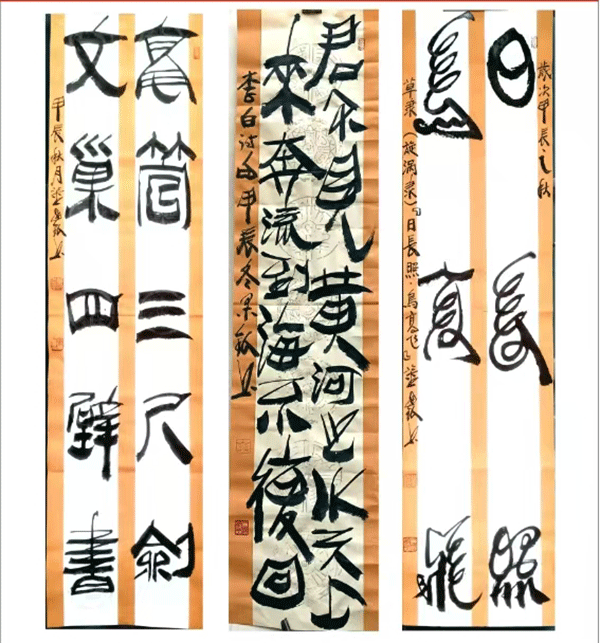 管三尺劍
文巢四壁書
甲辰秋月
君不見黄河之水天上
來奔流到海不復回
李白诗句甲辰冬
歲次甲辰之秋
日長照
鳥高飛
草隶（旋涡隶）日長照·鳥高飞